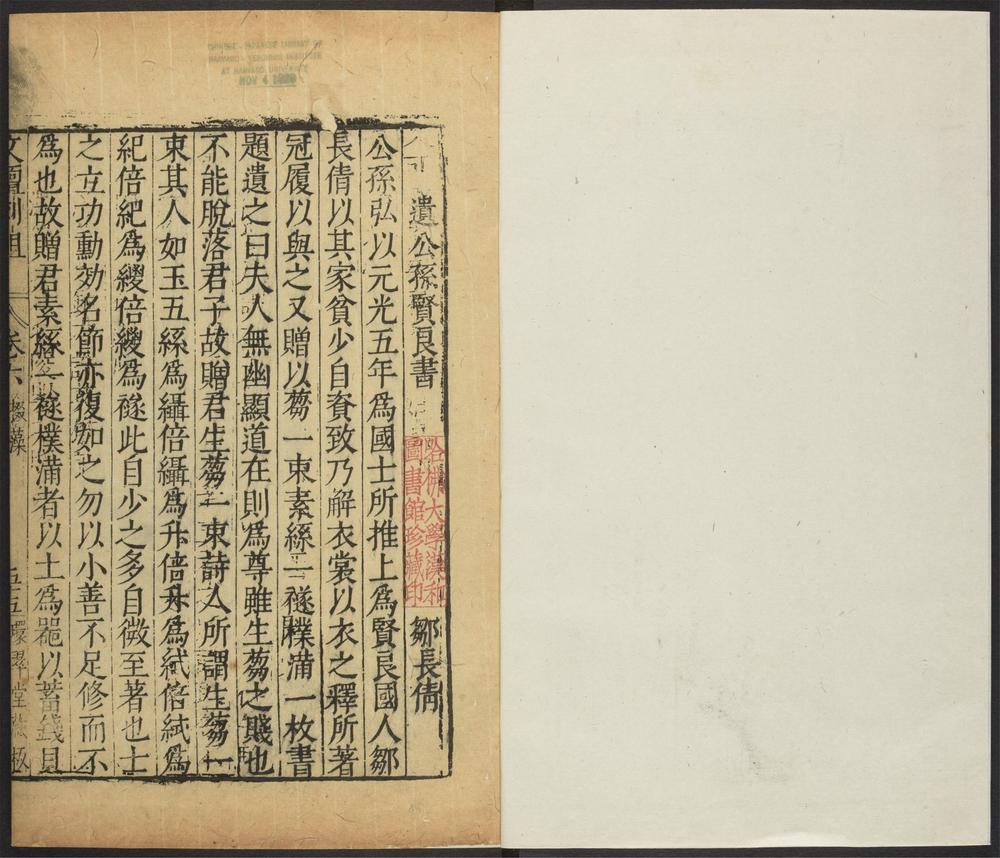 CHINESE-JAPANESE LIBRARY OF
HARVARD-YENCHING INSTITUTE
AT HARVARD UNIVERSITY
NOV 4
遺公孫賢良書 鄒長倩
哈佛大學漢和
圖書館珍藏印
公孫弘以元光五年爲國士所推上爲賢良國人鄒
長倩以其家貧少自資致乃解衣裳以衣之釋所著
冠履以與之又贈以蒭一束素絲一襚樸滿一枚書
題遺之曰夫人無幽顯道在則爲尊雖生蒭之賤也
不能脫落君子故贈君生蒭一束詩人所謂生蒭一
束其人如玉五絲爲繘倍繘爲升倍升爲紽倍紽爲
紀倍紀爲緵倍緵爲襚此自少之多自微至著也士
之立功勳効名節亦復如之勿以小善不足修而不
爲也故贈君素絲一襚樸滿者以土爲器以蓄錢具
文壇列俎 卷六 環翠堂